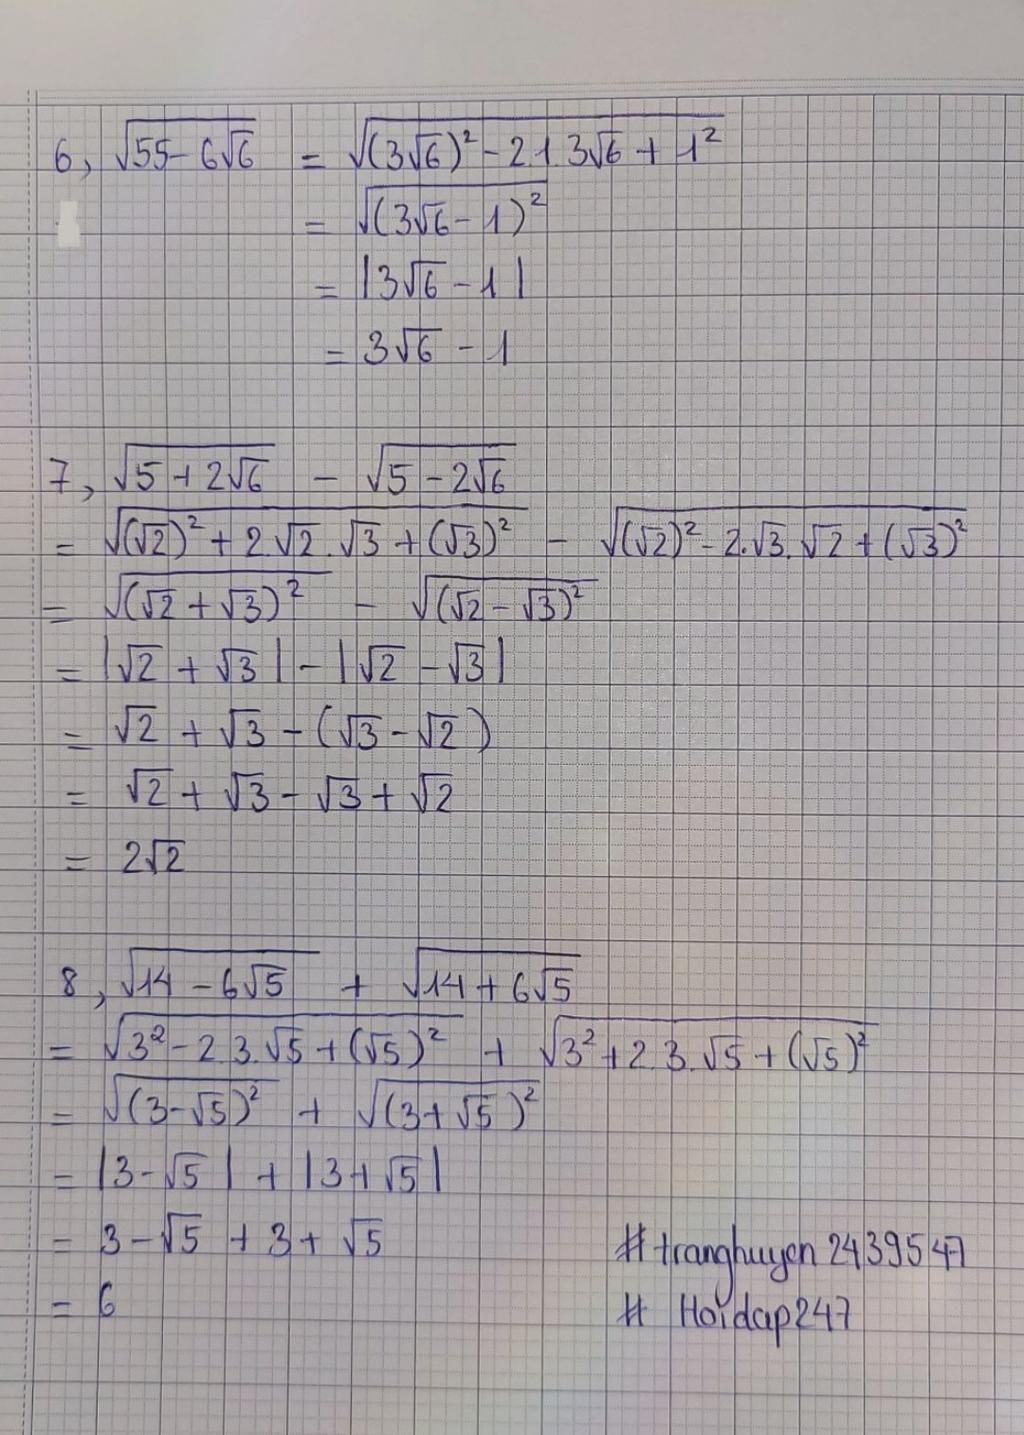 6, √(55 - 6√6) = √((3√6)² - 2.1.3√6 + 1²)
= √((3√6 - 1)²)
= |3√6 - 1|
= 3√6 - 1
7, √(5 + 2√6) - √(5 - 2√6)
= √((√2)² + 2.√2.√3 + (√3)²) - √((√2)² - 2.√3.√2 + (√3)²)
= √((√2 + √3)²) - √((√2 - √3)²)
= |√2 + √3| - |√2 - √3|
= √2 + √3 - (√3 - √2)
= √2 + √3 - √3 + √2
= 2√2
8, √(14 - 6√5) + √(14 + 6√5)
= √(3² - 2.3.√5 + (√5)²) + √(3² + 2.3.√5 + (√5)²)
= √((3 - √5)²) + √((3 + √5)²)
= |3 - √5| + |3 + √5|
= 3 - √5 + 3 + √5
= 6
# tranghuyen2439547
# Hoidap247